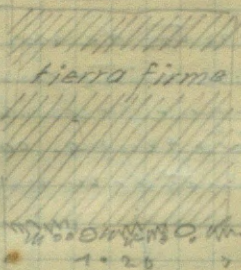 tierra firme
1.20